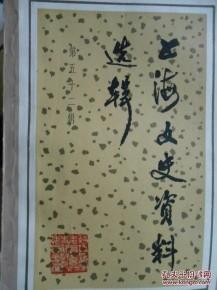 上海文史资料
选辑
第五十二辑